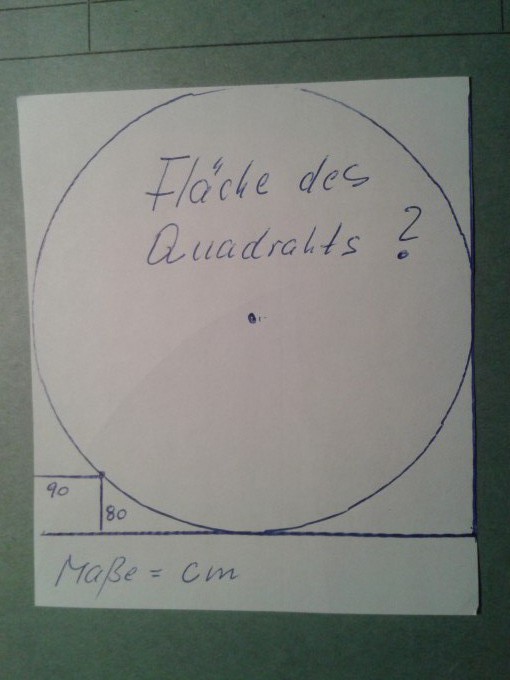 Fläche des
Quadrahts ?
90
80
Maße = cm